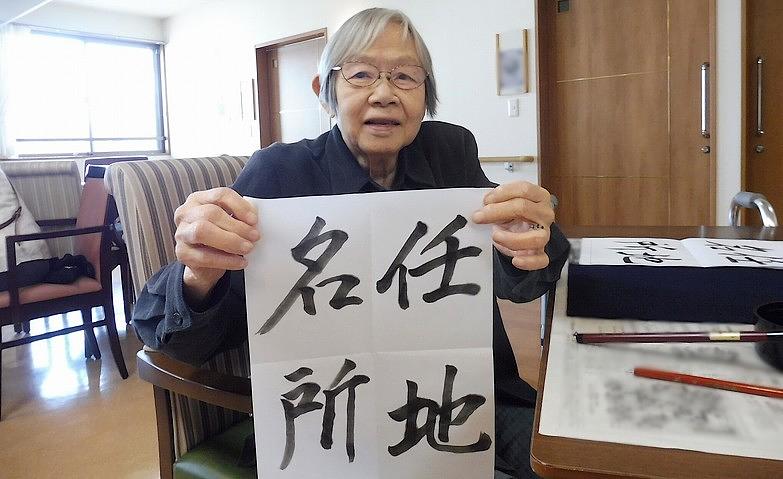 任地
名所